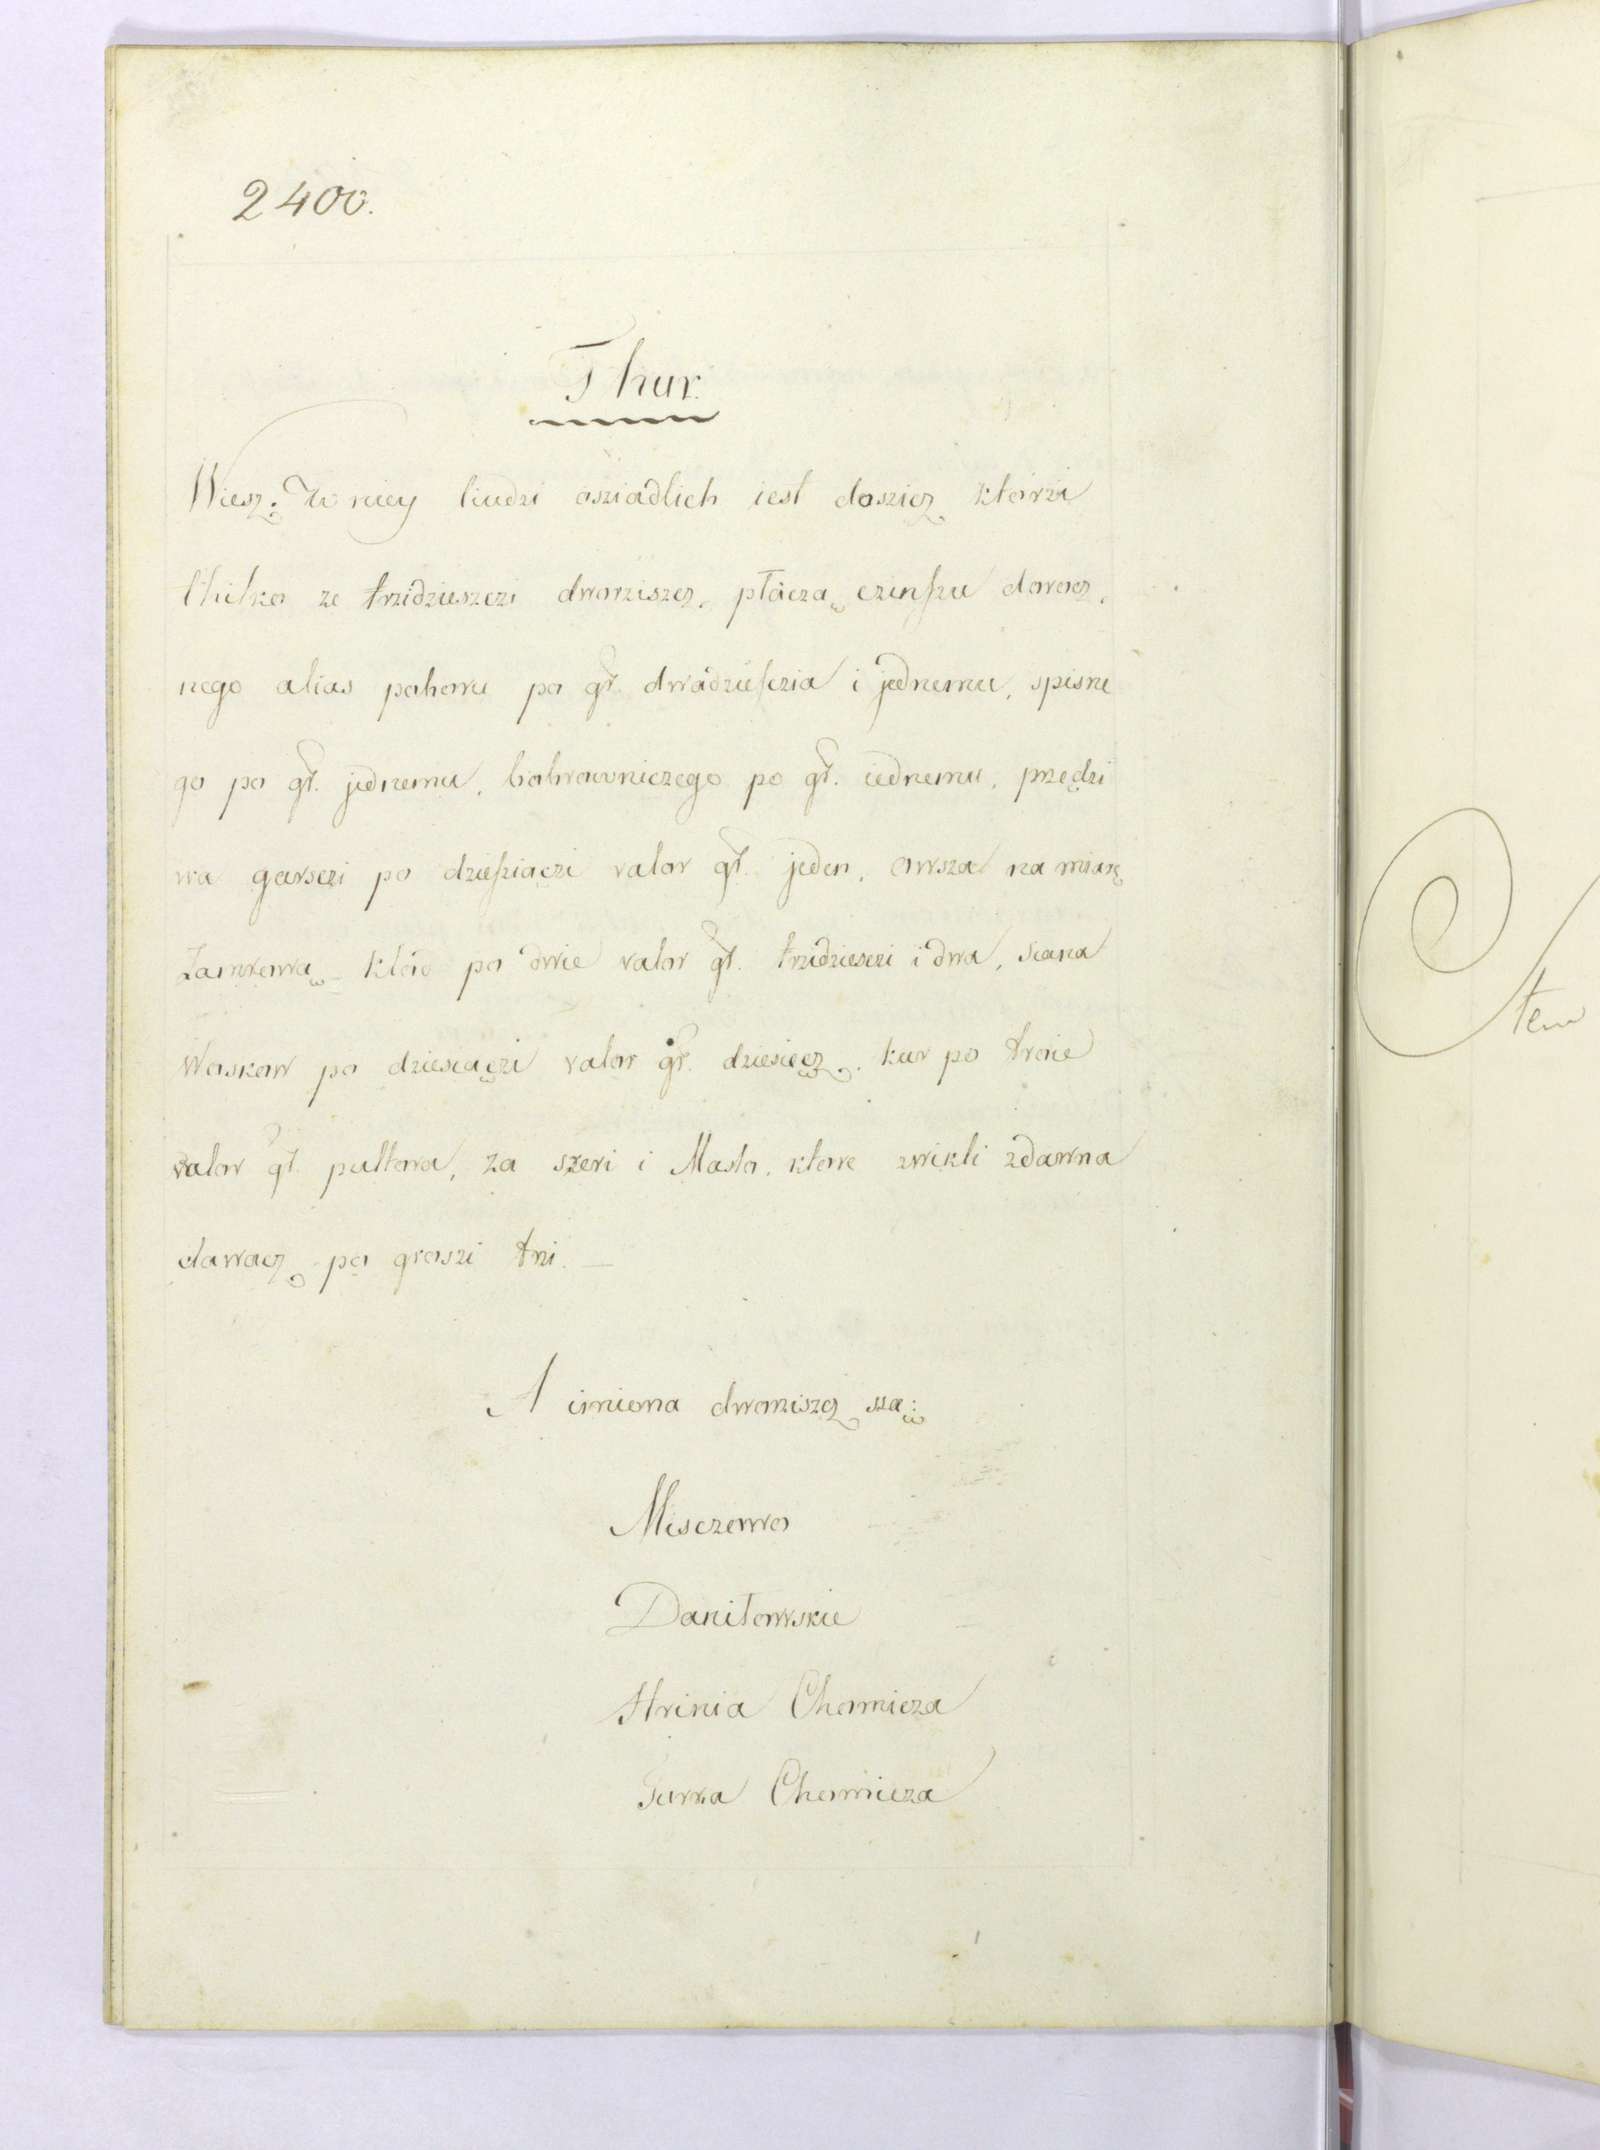 2400.
Thur.
Wiesz. W niey liudzi osziadlich iest doszicz, ktorzi
thilko ze trzidzieszczi dworziszcz, płacza czinszu dorocz,
nego alias pohowu po gr. dwadzieszczia i jednemu, spisne
go po gr. jednemu, bobrowniczego po gr. iednemu, przędzi
wa garsczi po dziesziączi valor gr. jeden, owsza na miarę
Zamkową kłod po dwie valor gr. trzidziesczi i dwa, siana
Woskow po dziesiączi valor gr. dziesięcz, kur po troie
valor gr. pultora, za szeri i Masło, ktore zwikli zdawna
dawacz po groszi trzi.
A imiona dworziszcz ssą:
Misczewo
Daniłowskie
Hrinia Chomicza
Jurka Chomicza
tem